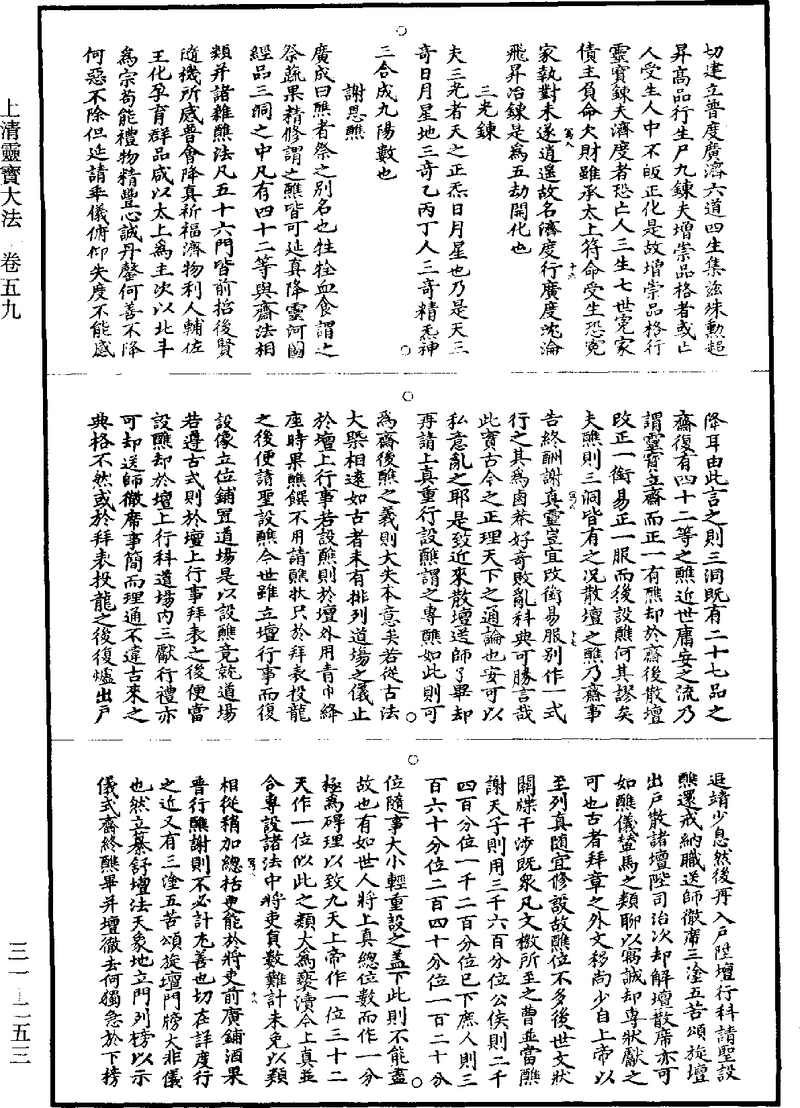 切建立普度廣濟六道四生集茲殊勳超
昇高品行生尸九鍊夫增崇品格者或亡
人受生人中不皈正化是故增崇品格行
靈寶鍊夫濟度者恐亡人三生七世寃家
債主負命欠財雖承太上符命受生恐寃
家執對未遂逍遥故名濟度行廣度沈淪
飛昇冶鍊是為五劫開化也
三光鍊
夫三光者天之正炁日月星也乃是天三
奇日月星地三奇乙丙丁人三奇精炁神
三合成九陽數也
謝恩醮
廣成曰醮者祭之別名也牲牷血食謂之
祭蔬果精修謂之醮皆可延真降靈河圖
經品三洞之中凡有四十二等與齋法相
類并諸雜醮法凡五十六門皆前哲後賢
隨機所感普會降真祈福濟物利人輔佐
王化孕育群品咸以太上為主次以北斗
為宗苟能禮物精豐心誠丹罄何善不降
何惡不除但延請乖儀俯仰失度不能感
降耳由此言之則三洞既有二十七品之
齋復有四十二等之醮近世庸妄之流乃
謂靈寶立齋而正一有醮却於齋後散壇
改正一銜易正一服而後設醮何其謬矣
夫醮則三洞皆有之况散壇之醮乃齋事
告終酬謝真靈豈宜改銜易服别作一式
行之其為鹵莽好奇敗亂科典可勝言哉
此實古今之正理天下之通論也安可以
私意亂之耶是致近來散壇送師了畢却
再請上真重行設醮謂之專醮如此則可
為齋後醮之義則大失本意矣若從古法
大槩相遠如古者未有排列道場之儀止
於壇上行事若設醮則於壇外用青巾絳
座時果醮饌不用請醮狀只於拜表投龍
之後便請聖設醮今世雖立壇行事而復
設像立位鋪置道場是以設醮竟就道場
若遵古式則於壇上行事拜表之後便當
設醮却於壇上行科道場内三獻行禮亦
可却送師徹席事簡而理通不違古來之
典格不然或於拜表投龍之後復爐出戶
退靖少息然後再入戶陞壇行科請聖設
醮還戒納職送師徹席三塗五苦頌旋壇
出戶散諸壇陛司治次却解壇散席亦可
如醮儀蟄馬之類聊以寫誠却專狀獻之
可也古者拜章之外文移尚少自上帝以
至列真隨宜修設故醮位不多後世文狀
關牒干涉既衆凡文檄所至之曹並當醮
謝天子則用三千六百分位公侯則二千
四百分位一千二百分位已下庶人則三
百六十分位二百四十分位一百二十分
位隨事大小輕重設之盖下此則不能盡
故也有如世人將上真總位數而作一分
極為碍理以致九天上帝作一位三十二
天作一位似此之類大為褻瀆今上真並
合專設諸法中將吏負數難計未免以類
相從稍加總括更能於將吏前廣鋪酒果
普行醮謝則不必計尤善也切在詳度行
之近又有三塗五苦頌旋壇門牓大非儀
也然立纂舒壇法天象地立門列榜以示
儀式齋終醮畢并壇徹去何獨急於下榜
上清靈寶大法 卷五九
三一—二五三